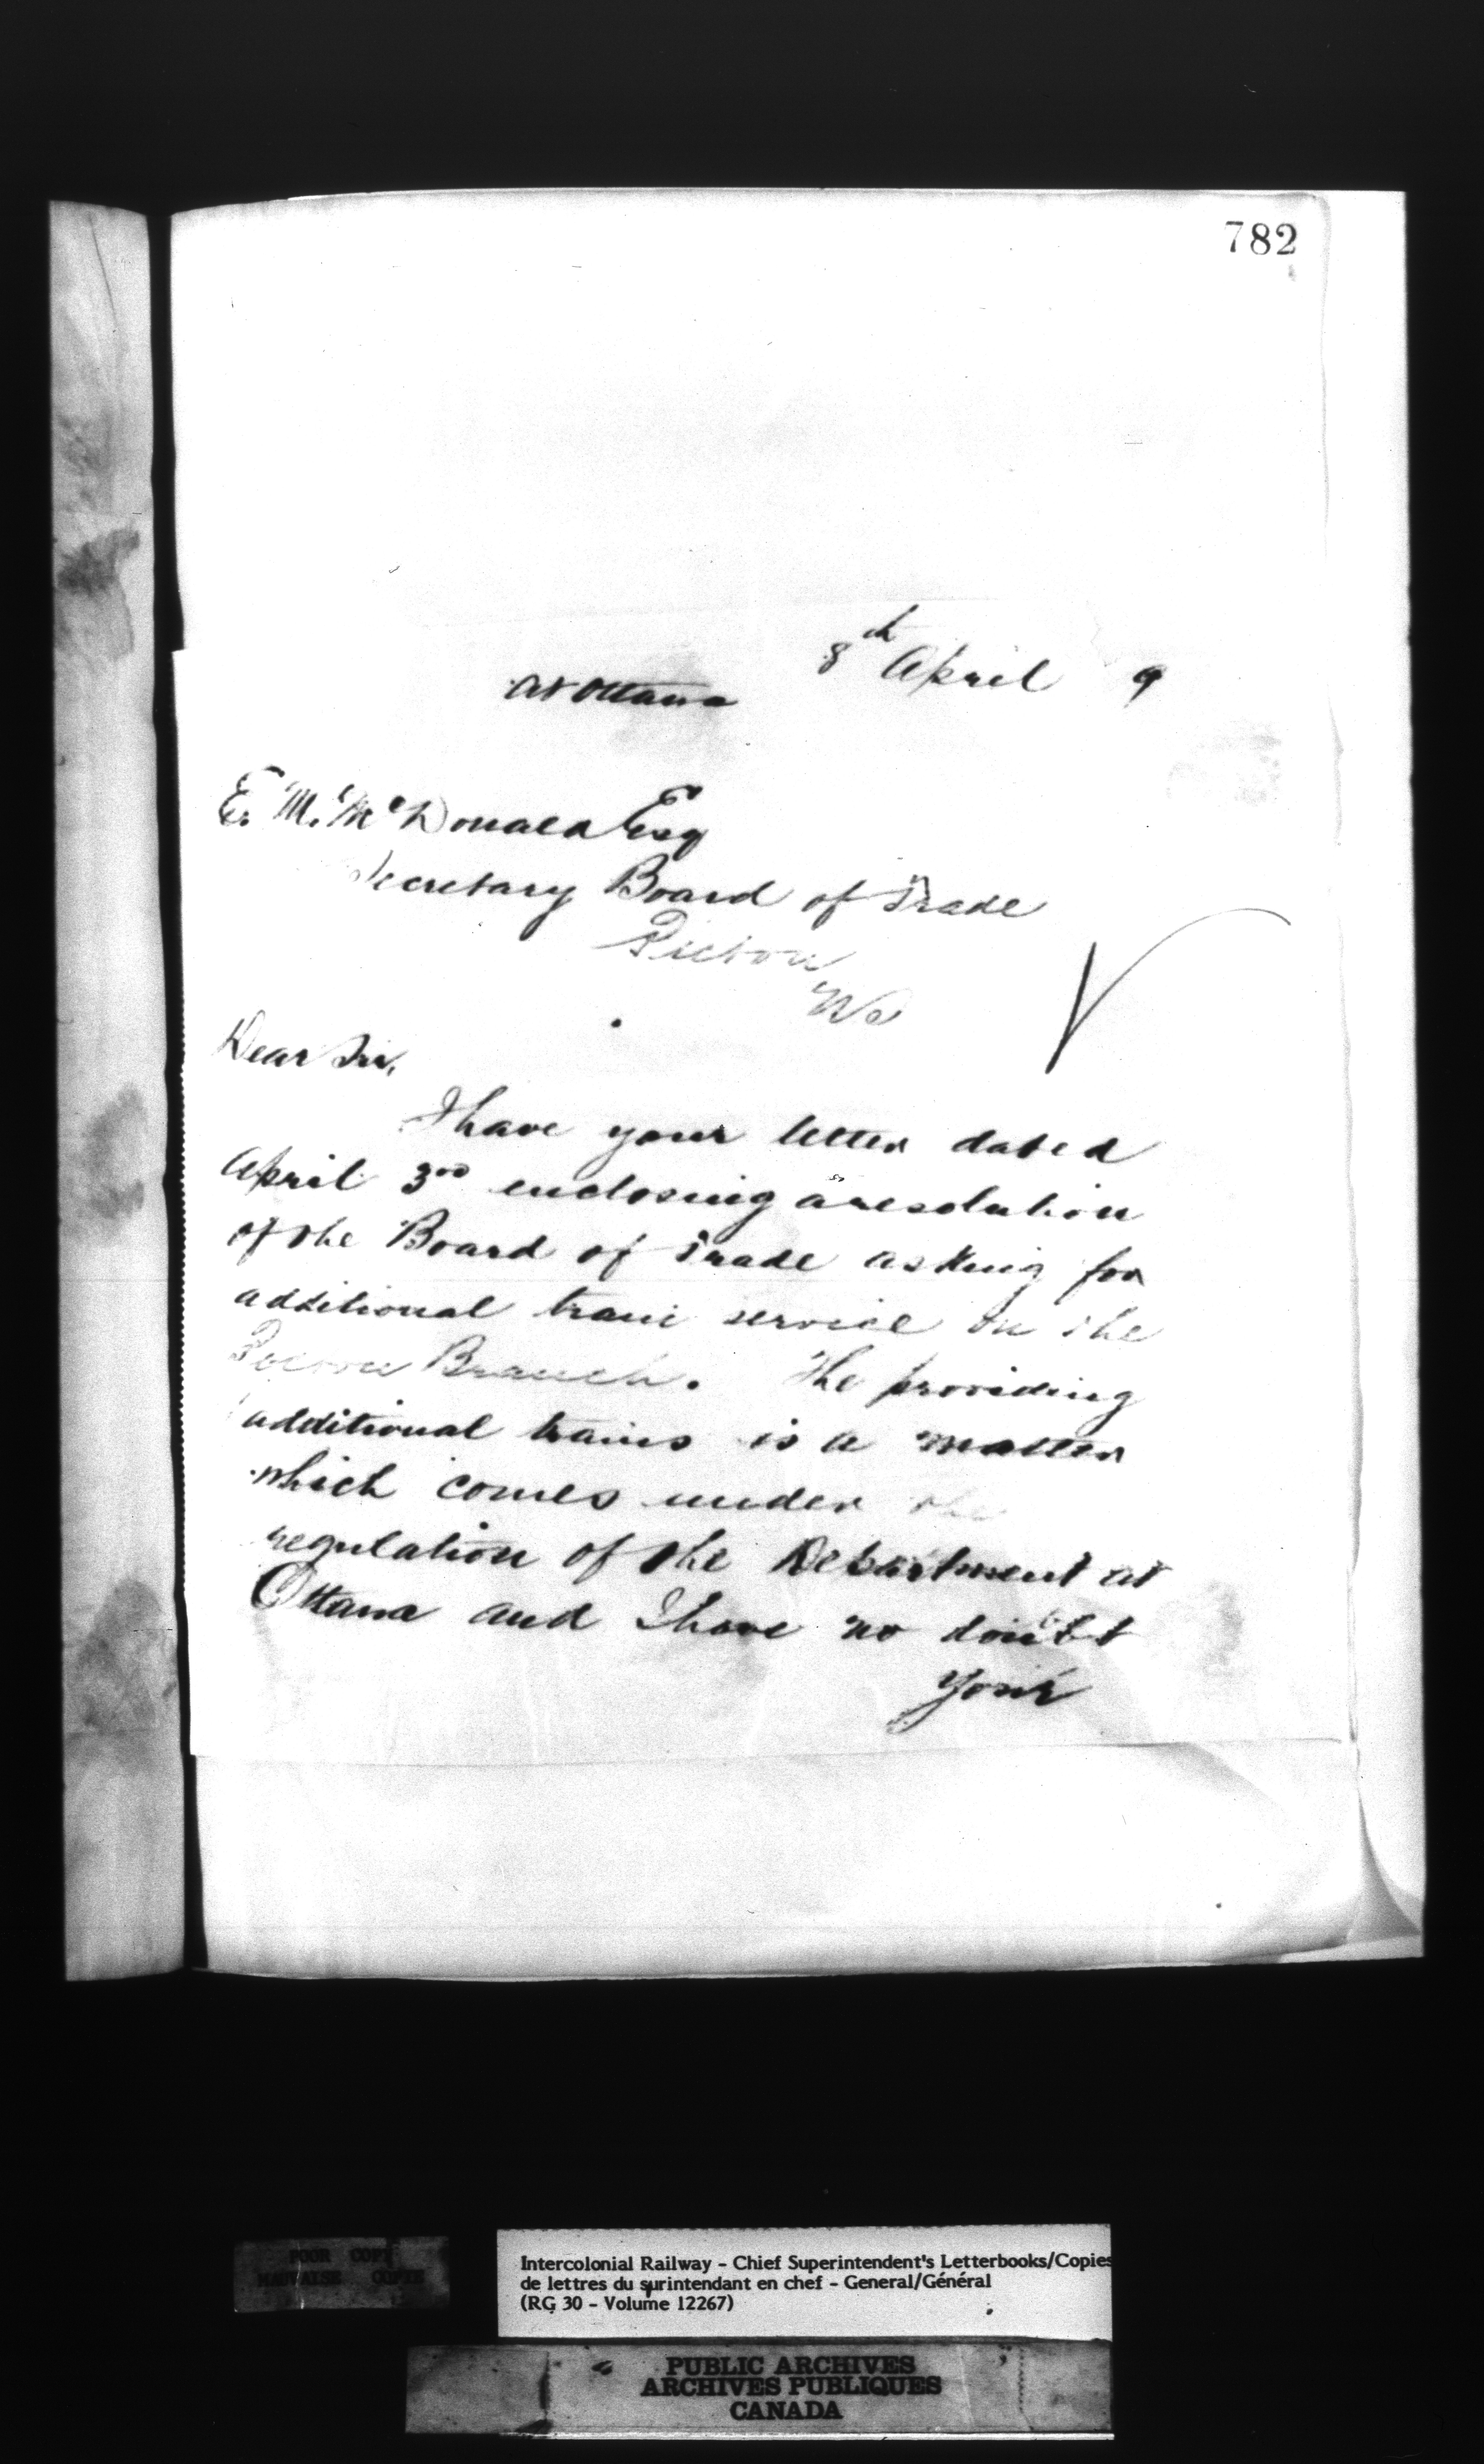 782
8th April 9
At Ottawa
E. M. McDonald Esq
Secretary Board of Trade
Pictou
NS
Dear Sir,
I have your letter dated
April 3rd enclosing a resolution
of the Board of Trade asking for
additional train service on the
Pictou Branch. The providing
additional trains is a matter
which comes under the
regulation of the Department at
Ottawa and I have no doubt
your
POOR COPY
MAUVAISE COPIE
Intercolonial Railway - Chief Superintendent's Letterbooks/Copies
de lettres du surintendant en chef - General/Général
(RG 30 - Volume 12267)
PUBLIC ARCHIVES
ARCHIVES PUBLIQUES
CANADA